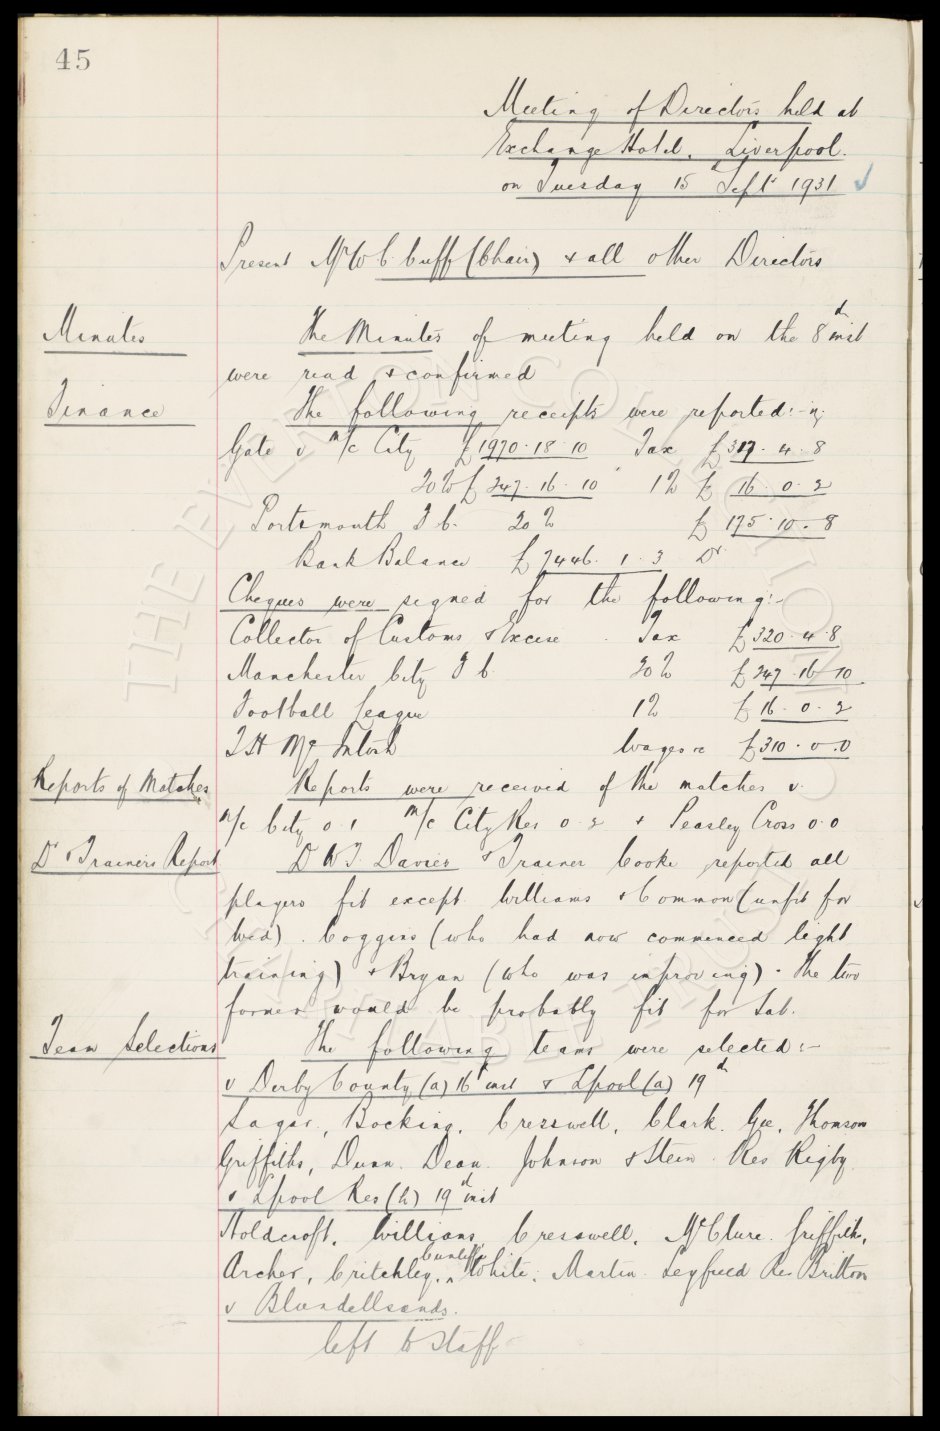 45
Meeting of Directors held at
Exchange Hotel, Liverpool.
on Tuesday 15 Sept 1931
Present Mr W C Cuff (Chair) & all other Directors
Minutes
The Minutes of meeting held on the 8th inst
were read & confirmed
Finance
The following receipts were reported:-
Gate v M/c City £1970.18.10 Tax £317.4.8
20% £347.16.10 1% £16.0.2
Portsmouth F C. 20% £175.10.8
Bank Balance £7446.1.3 Dr
Cheques were signed for the following:-
Collector of Customs & Excise Tax £320.4.8
Manchester City F C 20% £347.16.10
Football League 1% £16.0.2
T H McIntosh Wages &c £310.0.0
Reports of Matches
Reports were received of the matches v.
M/c City 0.1 M/c City Res 0.2 & Peasley Cross 0.0
Dr & Trainers Report
Dr W.J. Davies & Trainer Cooke reported all
players fit except Williams & Common (unfit for
Wed). Coggins (who had now commenced light
training) & Bryan (who was improving). The two
former would be probably fit for Sat.
Team Selections
The following teams were selected:-
v Derby County (a) 16th inst & Lpool (a) 19th
Sagar, Bocking, Cresswell, Clark. Gee, Thomson
Griffiths, Dunn. Dean. Johnson & Stein. Res Rigby
v Lpool Res (h) 19th inst
Holdcroft, Williams, Cresswell, McClure. Griffiths,
Archer, Critchley, Cunliffe, White, Martin Leyfield Res Britton
v Blundellsands.
left to staff
THE EVERTON COLLECTION
CHARITABLE TRUST